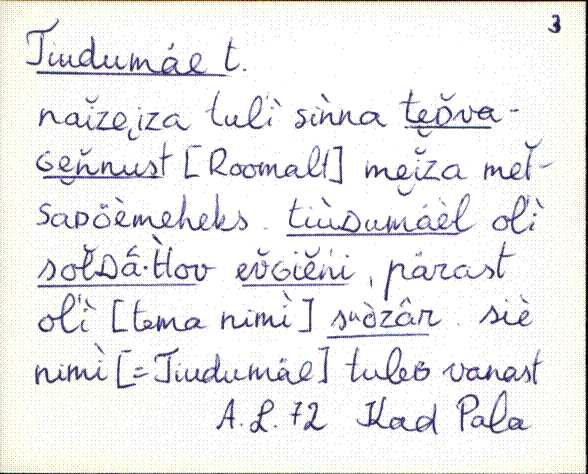 3
Tiudumäe t.
naĭzejza tulì sìnna teŏva-
Geňnust [Roomalt] mejža meť-
saDöèmeheks. tiùDumäèl olì
solDâ·tlov evGiéni, pärast
olì [tema nimì] suòzâr. siè
nimì [= Tiudumäe] tuleb vanast
A. L. 72 Kad Pala